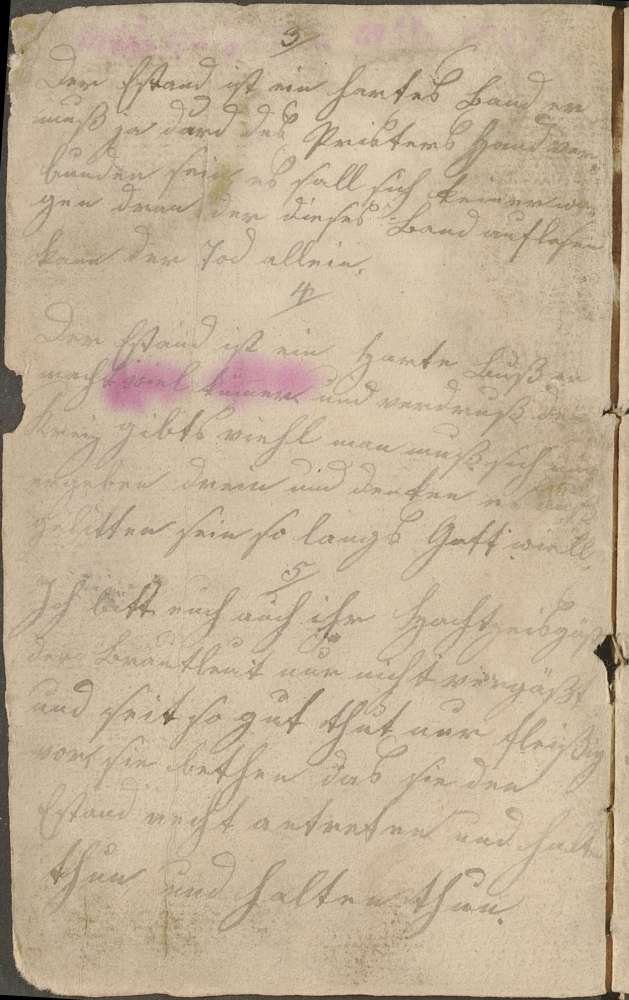 3
Der Estand ist ein hartes Band er
muß ja durch des Pristers Hand ver-
bunden sein es soll sich keiner wa-
gen dran der dieses Band auflesen
kann der Tod allein.
4
Der Estand ist ein Harte Buß er
macht viel kumer und verdruß der
Kreiz gibts viehl man muß sich nur
ergeben drein und denken es muß
gelitten sein so langs Gott will.
5
Ich bitt euch auch ihr Hochtzeitsgäst
der Brautleut nur nicht vergäßt
und seit so gut thut nur fleißig
vor sie bethen das sie den
Estand recht antreten und halten
thun und halten thun.